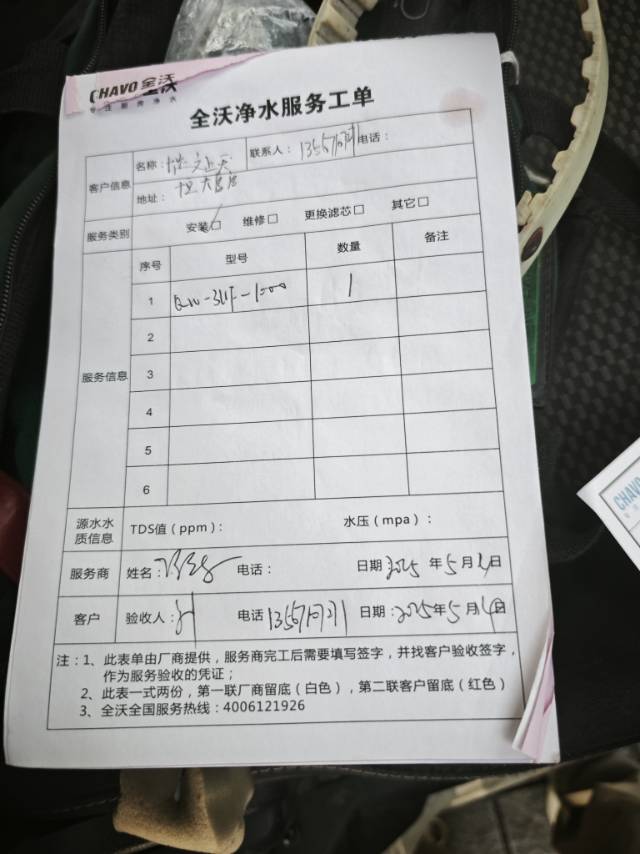 CHAVO 全沃
专注厨房净水
全沃净水服务工单
客户信息
名称：
联系人：
电话：
地址：恒大
服务类别
安装☑ 维修□ 更换滤芯□ 其它□
服务信息
序号 型号 数量 备注
1 1
2
3
4
5
6
源水水质信息
TDS值（ppm）： 水压（mpa）：
服务商 姓名： 电话： 日期 2025 年 5 月 4 日
客户 验收人： 电话 日期：2025 年 5 月 4 日
注：1、此表单由厂商提供，服务商完工后需要填写签字，并找客户验收签字，
作为服务验收的凭证；
2、此表一式两份，第一联厂商留底（白色），第二联客户留底（红色）
3、全沃全国服务热线：4006121926
CHAVO